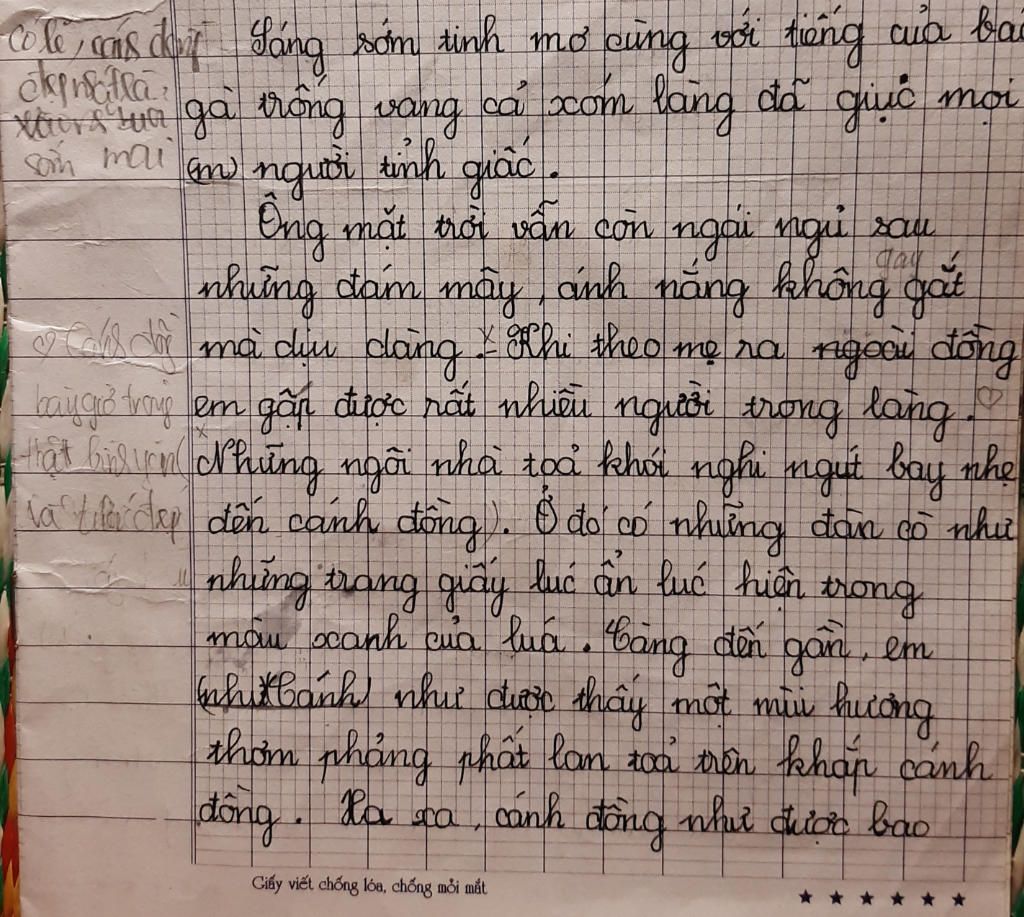 Sáng sớm tinh mơ cùng với tiếng của bác
gà trống vang cả xóm làng đã giục mọi
(m) người tỉnh giấc.
Ông mặt trời vẫn còn ngái ngủ sau
gay
những đám mây, ánh nắng không gắt
mà dịu dàng. Khi theo mẹ ra ngoài đồng
em gặp được rất nhiều người trong làng.
(Những ngôi nhà toả khói nghi ngút bay nhẹ
đến cánh đồng). Ở đó có những đàn cò như
những trang giấy lúc ẩn lúc hiện trong
màu xanh của luá. Càng đến gần, em
như được thấy một mùi hương
thơm phảng phất lan toả trên khắp cánh
đồng. Xa xa, cánh đồng như được bao
Có lẽ, cánh đồng
đẹp nhất là
sớm mai
bây giờ trông
thật bình yên
và tươi đẹp
Giấy viết chống lóa, chống mỏi mắt